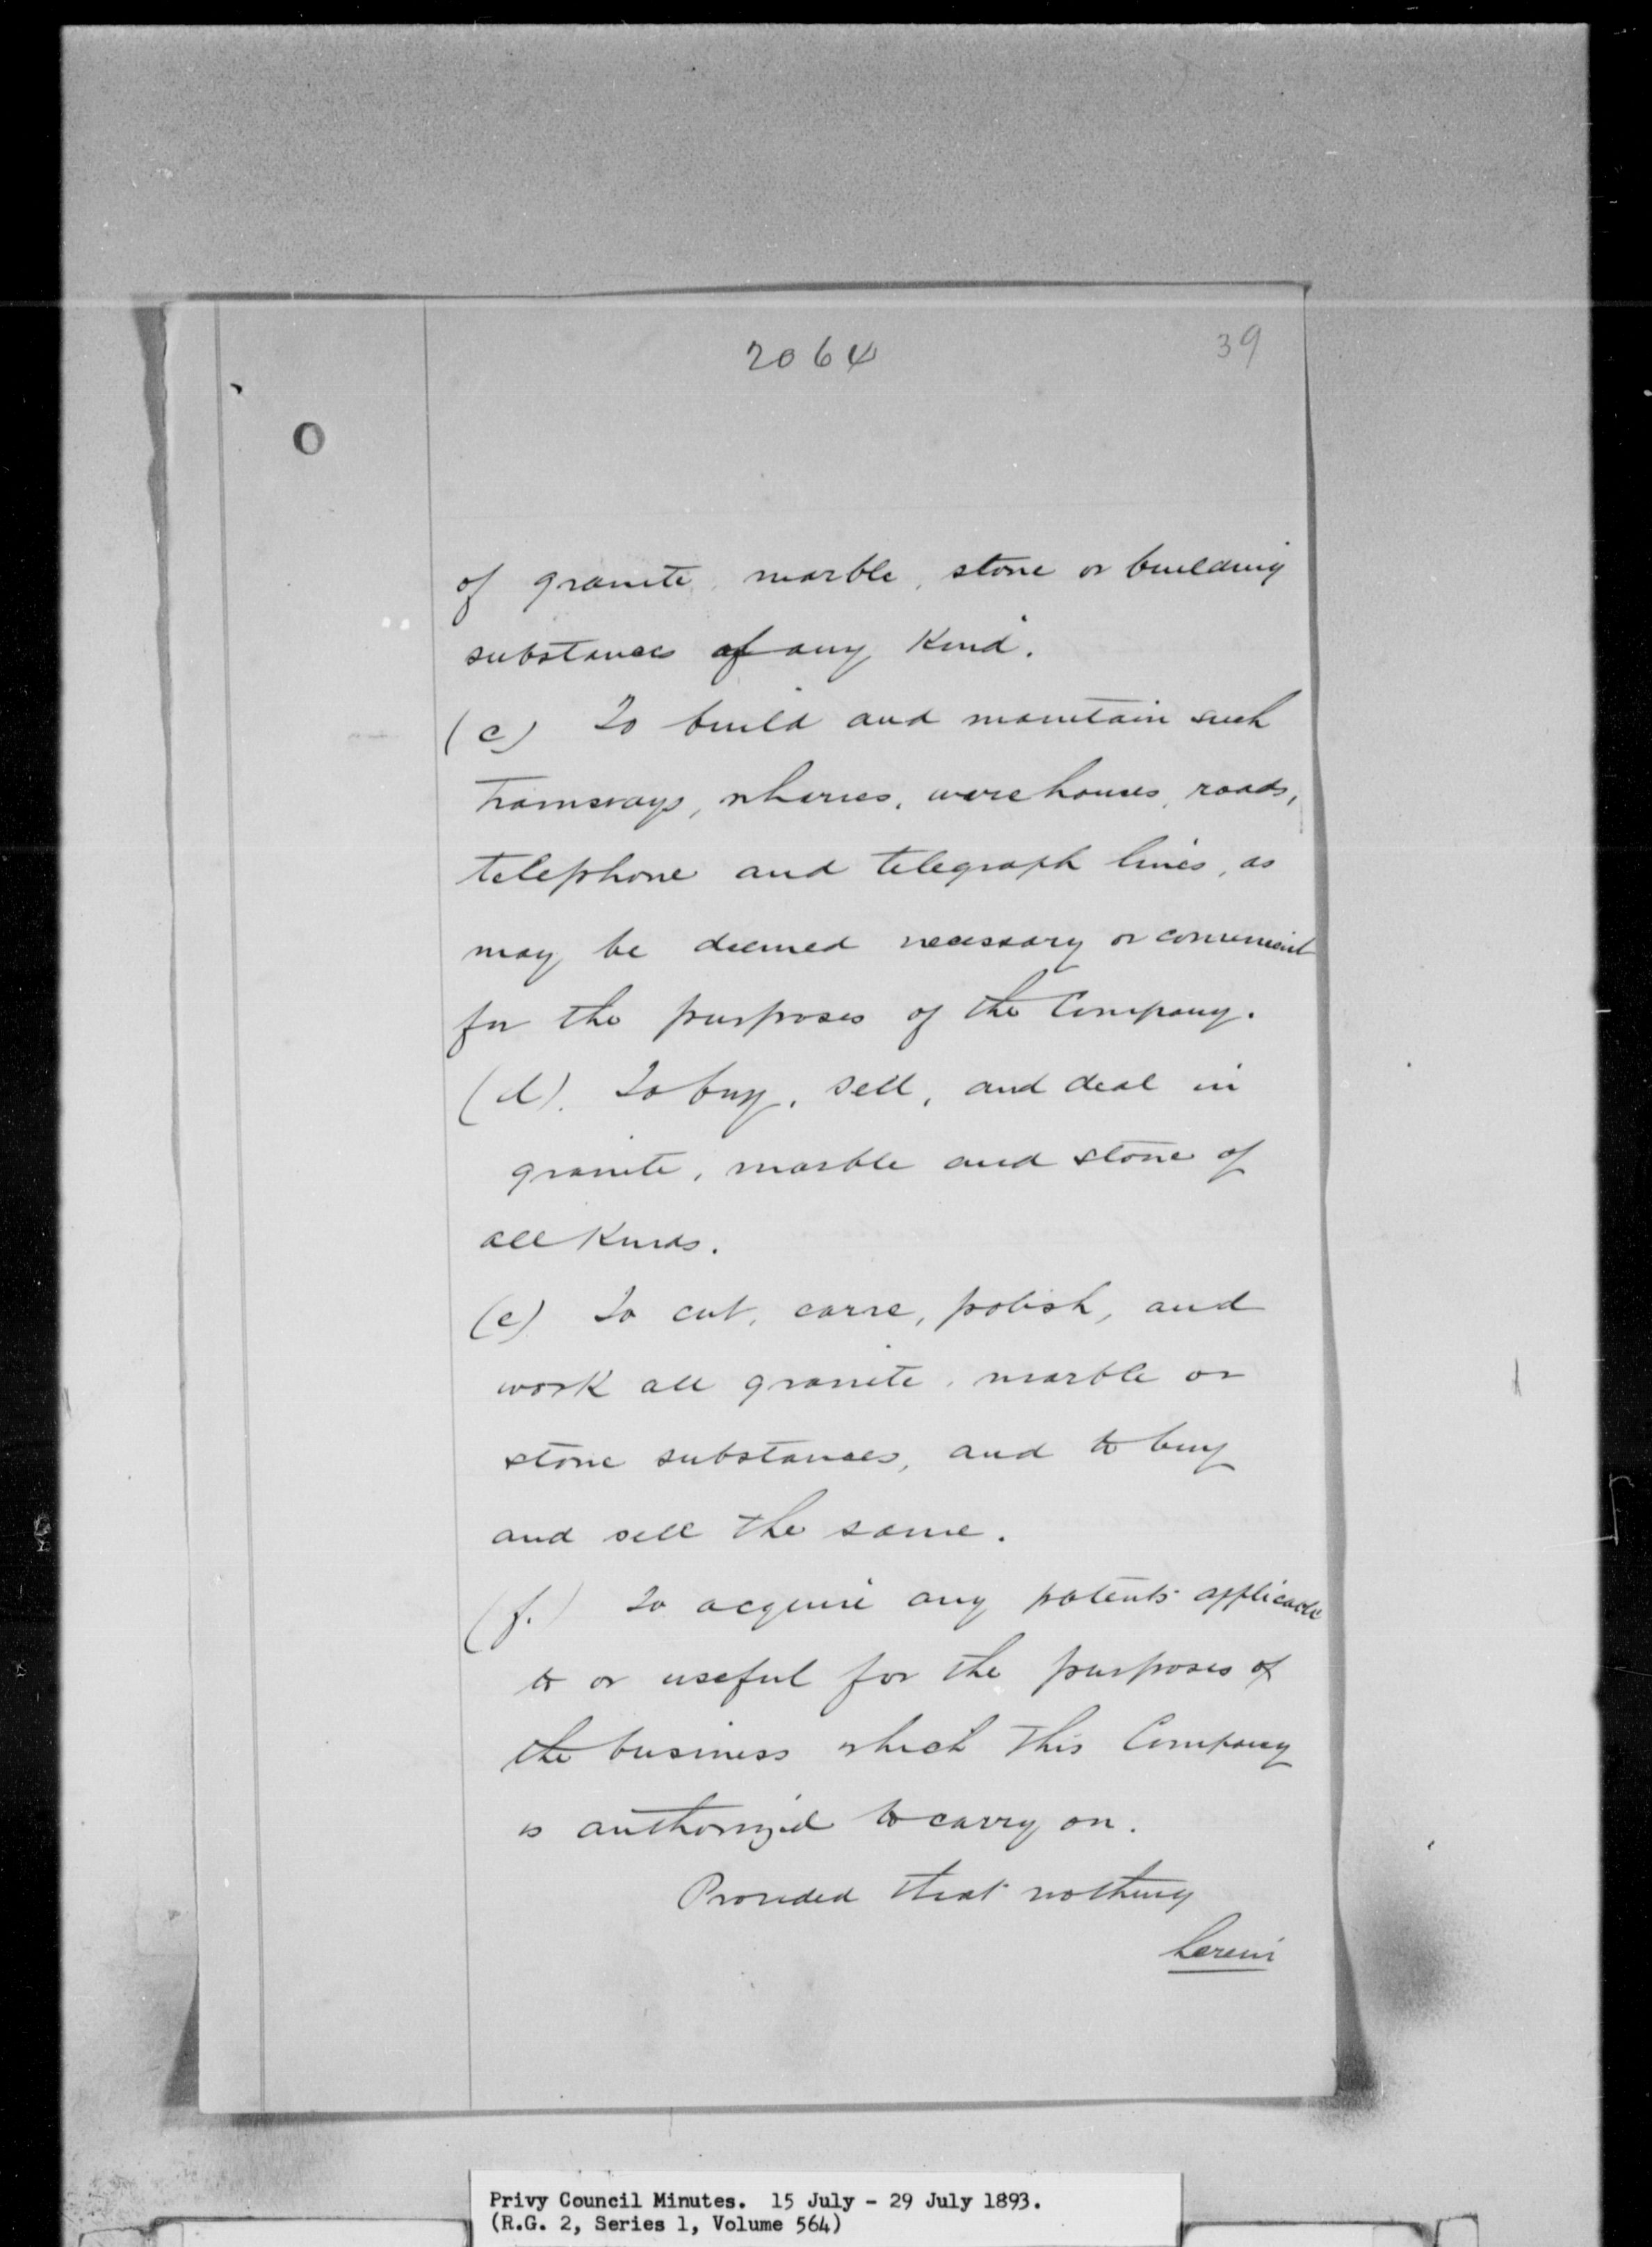 2064
39
of granite, marble, stone or building
substances of any kind.
(c) To build and maintain such
tramways, wharves, warehouses, roads,
telephone and telegraph lines, as
may be deemed necessary or convenient
for the purposes of the Company.
(d). To buy, sell, and deal in
granite, marble and stone of
all kinds.
(e) To cut, carve, polish, and
work all granite, marble or
stone substances, and to buy
and sell the same.
(f.) To acquire any patents applicable
to or useful for the purposes of
the business which this Company
is authorized to carry on.
Provided that nothing
herein
Privy Council Minutes. 15 July - 29 July 1893.
(R.G. 2, Series 1, Volume 564)